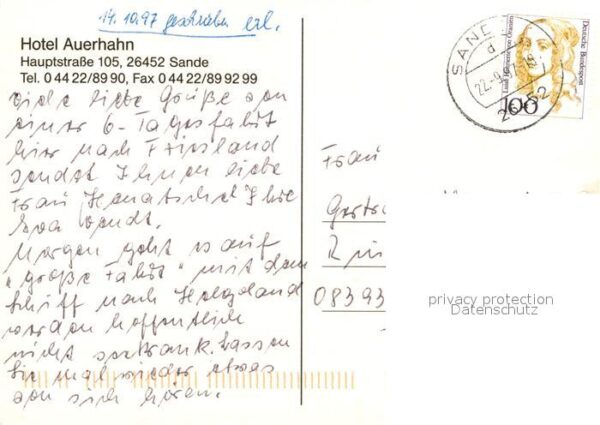 14.10.97 geschrieben erl.
Hotel Auerhahn
Hauptstraße 105, 26452 Sande
Tel. 0 44 22/89 90, Fax 0 44 22/89 92 99
Viele liebe Grüße von
einer 6-Tagesfahrt
hier nach Friesland
sendet Ihnen liebe
Frau Ihre
Eva
Morgen geht es auf
"große Fahrt" mit dem
Schiff nach Helgoland
werden hoffentlich
nicht seekrank. Lassen
Sie mal wieder etwas
von sich hören.
SANDE
d
22.-9.97
26452
Deutsche Bundespost
100
Frau
08393
privacy protection
Datenschutz